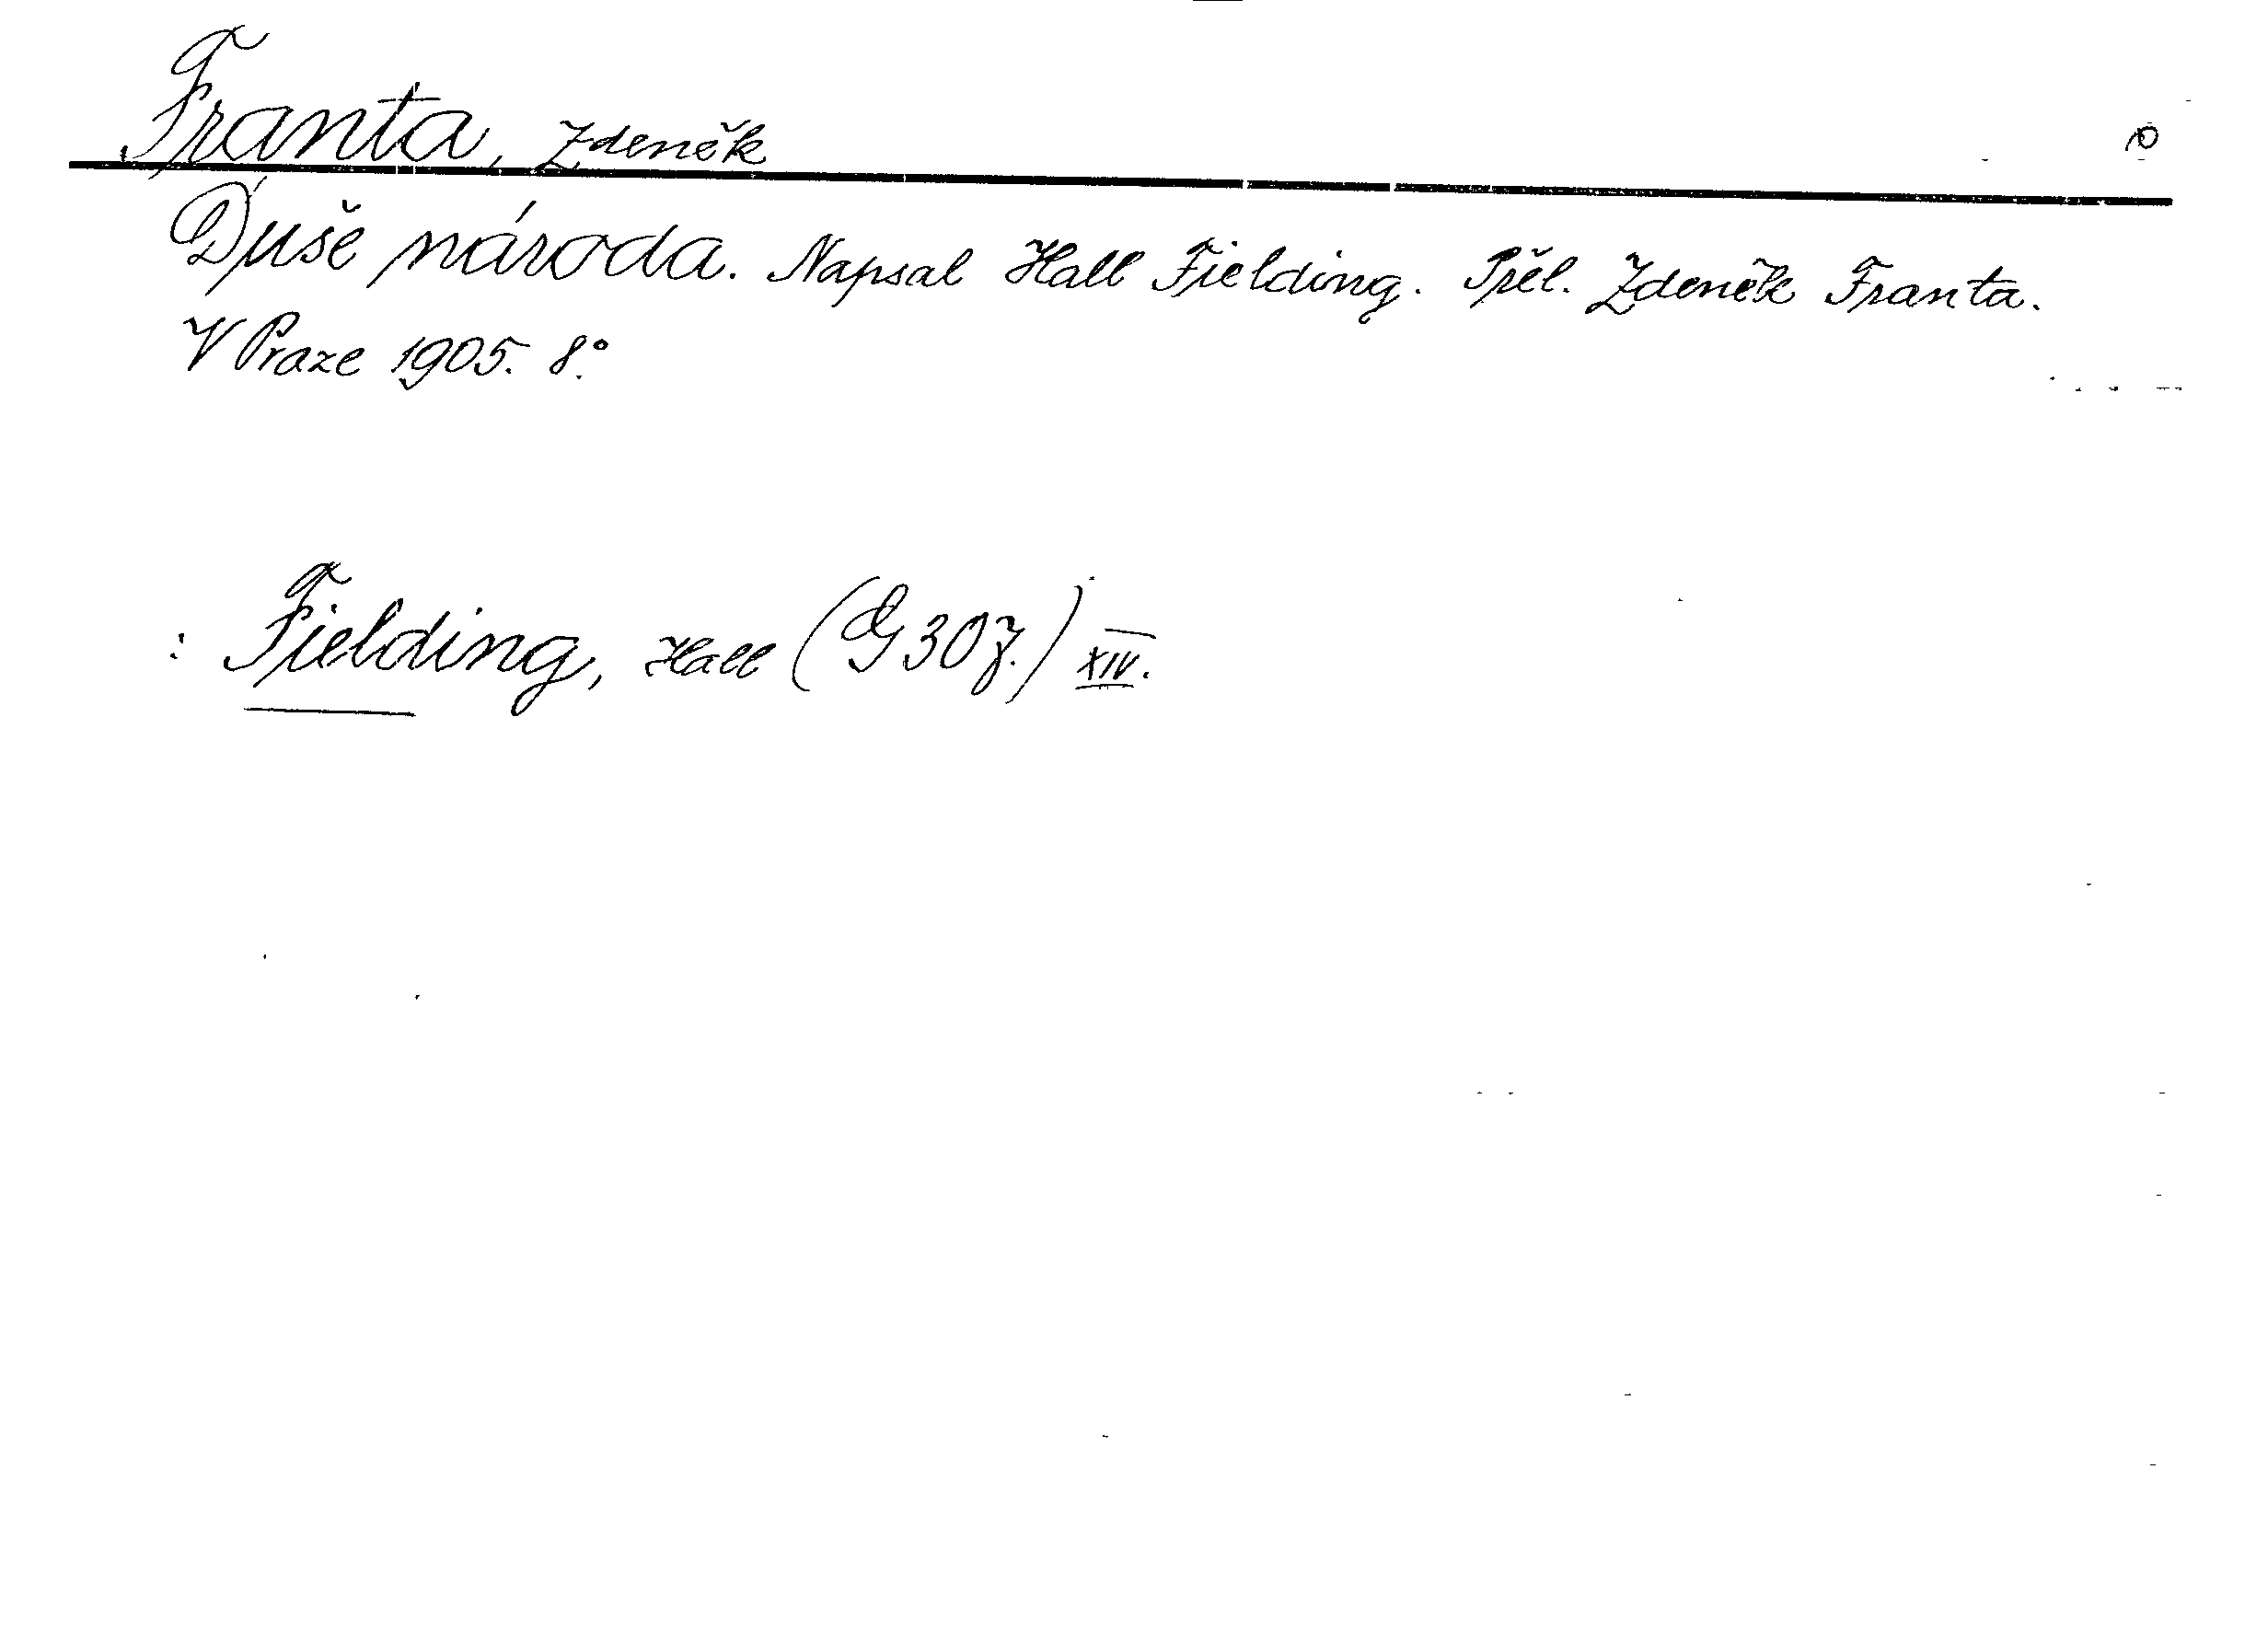 Franta, Zdeněk
Duše národa. Napsal Hall Fielding. Přel. Zdeněk Franta.
V Praze 1905. 8°.
: Fielding, Hall (G 30 J.) XIV.